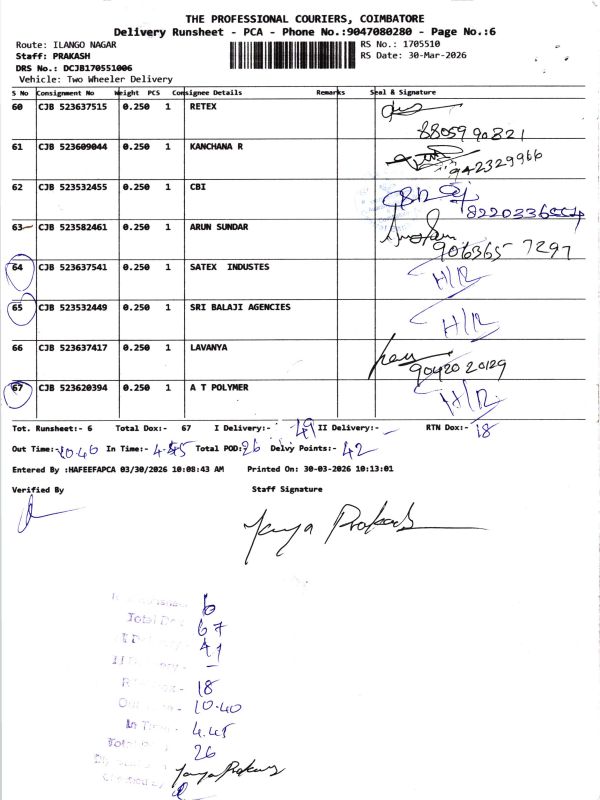 THE PROFESSIONAL COURIERS, COIMBATORE
Delivery Runsheet - PCA - Phone No.:9047080280 - Page No.:6
Route: ILANGO NAGAR
RS No.: 1705510
Staff: PRAKASH
RS Date: 30-Mar-2026
DRS No.: DCJB170551006
Vehicle: Two Wheeler Delivery
S No Consignment No Weight PCS Consignee Details Remarks Seal & Signature
60 CJB 523637515 0.250 1 RETEX
8805990821
61 CJB 523609044 0.250 1 KANCHANA R
942329966
62 CJB 523532455 0.250 1 CBI
63 CJB 523582461 0.250 1 ARUN SUNDAR
9063657297
64 CJB 523637541 0.250 1 SATEX INDUSTES H/R
65 CJB 523532449 0.250 1 SRI BALAJI AGENCIES H/R
66 CJB 523637417 0.250 1 LAVANYA
90420 20129
67 CJB 523620394 0.250 1 A T POLYMER H/R
Tot. Runsheet:- 6 Total Dox:- 67 I Delivery:- 49 II Delivery:- - RTN Dox:- 18
Out Time:- 10.40 In Time:- 4.45 Total POD: 26 Delvy Points:- 42
Entered By :HAFEEFAPCA 03/30/2026 10:08:43 AM Printed On: 30-03-2026 10:13:01
Verified By Staff Signature
Prakash
6
Total Do : 67
I D
II D -
18
10.40
In Time 4.45
Total 26
Prakash